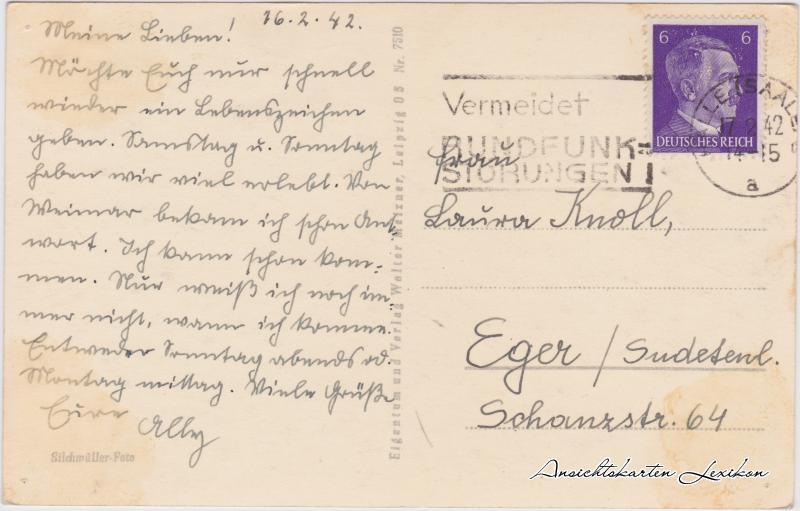 16.2.42.
Meine Lieben!
Möchte Euch nur schnell
wieder ein Lebenszeichen
geben. Samstag u. Sonntag
haben wir viel erlebt. Von
Weimar bekam ich schon Ant
wort. Ich kann schon kom-
men. Nur weiß ich noch im
mer nicht, wann ich komme.
Entweder Sonntag abends od.
Montag mittag. Viele Grüße
Eure
Ally
Silchmüller-Foto
Eigentum und Verlag Walter Meixner, Leipzig O 5 Nr. 7510
Vermeidet
RUNDFUNK-
STÖRUNGEN!
6 6
DEUTSCHES REICH
(SAALE)
17.2.42
14-15
a
Frau
Laura Knoll,
Eger / Sudetenl.
Schanzstr. 64
Ansichtskarten Lexikon